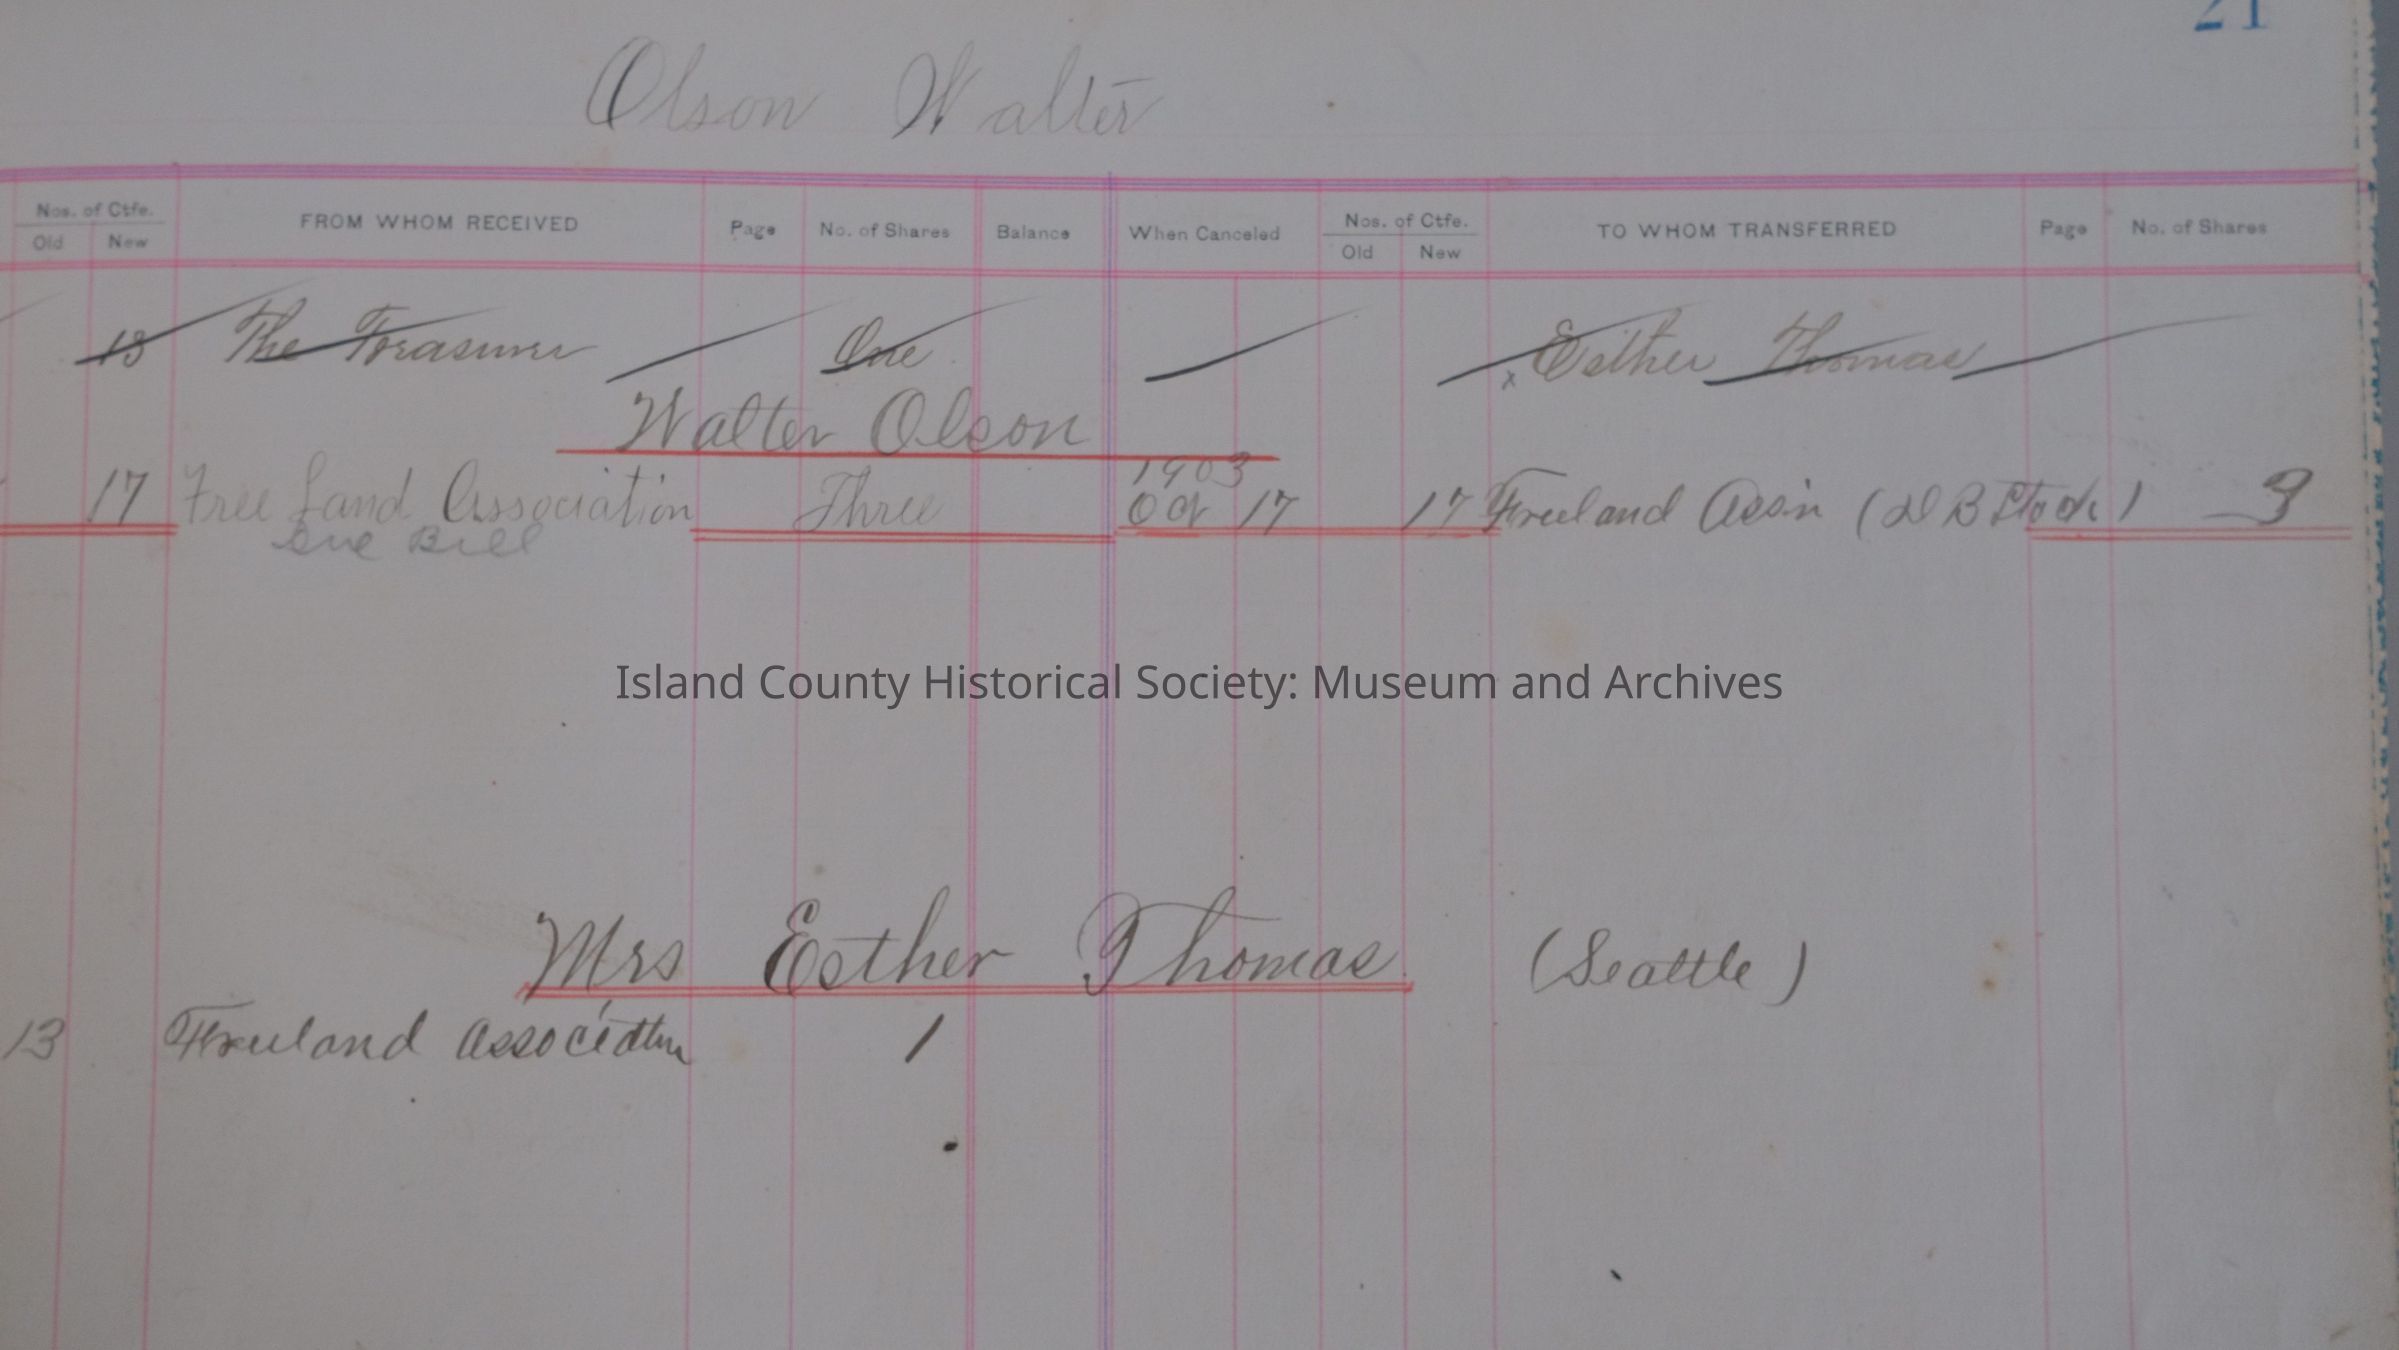 21
Olson Walter
Nos. of Ctfe. FROM WHOM RECEIVED Page No. of Shares Balance When Canceled Nos. of Ctfe. TO WHOM TRANSFERRED Page No. of Shares
Old New Old New
13 The Treasurer One x Esther Thomas
Walter Olson
1903
17 Free Land Association Three Oct 17 17 Freeland Assn (D B Stock) 3
Due Bill
Island County Historical Society: Museum and Archives
Mrs Esther Thomas (Seattle)
13 Freeland Association 1